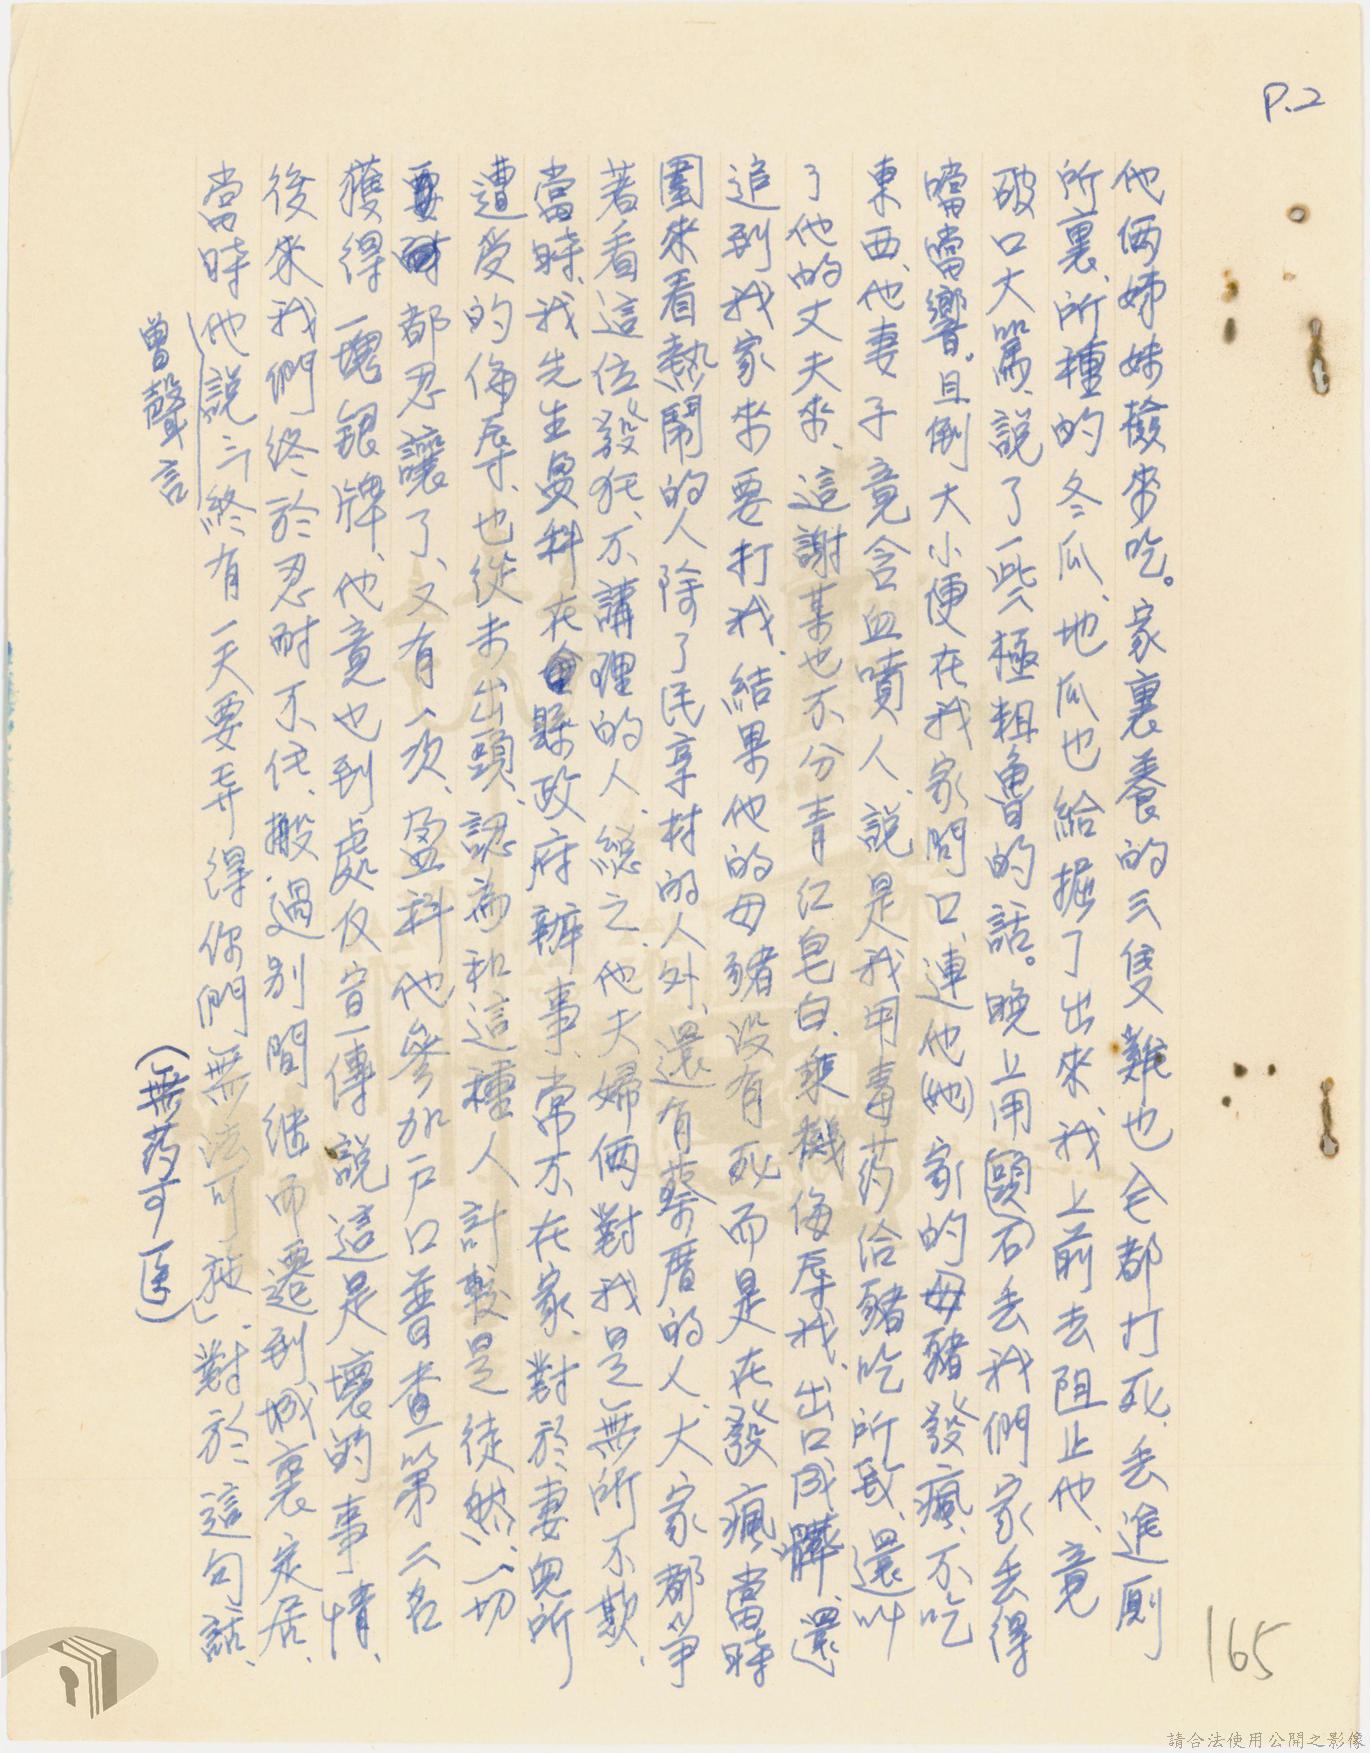 P.2
他倆姊妹撿來吃。家裏養的三隻雞也全都打死、丢進厠
所裏、所種的冬瓜、地瓜也給掘了出來、我上前去阻止他、竟
破口大罵、說了一些極粗魯的話。晚上用石丢我們家丢得
噹噹響。且倒大小便在我家門口、連他(她)家的母豬發瘋、不吃
東西、他妻子竟含血噴人、說是我用毒药給豬吃所致、還叫
了他的丈夫來、這謝某也不分青红皂白、乘機侮辱我、出口成髒、還
追到我家來要打我、結果他的母豬没有死而是在發瘋、當時
圍來看熱鬧的人除了民享村的人外、還有蔡厝的人、大家都爭
著看這位發狂、不講理的人、総之、他夫婦倆對我是無所不欺、
當時、我先生盈科在縣政府辦事、常不在家、對於妻兒所
遭受的侮辱、也從未出頭、認為和這種人計較是徒然、一切
都忍讓了、又有一次、盈科他參加户口普查一第二名
獲得一塊銀牌、他竟也到處反宣傳說這是壞的事情、
後來我們終於忍耐不住、搬過別間继而遷到城裏定居、
當時他說「終有一天要弄得你們無法可施」、對於這句話、
曾聲言
(無药可医)
165
請合法使用公開之影像